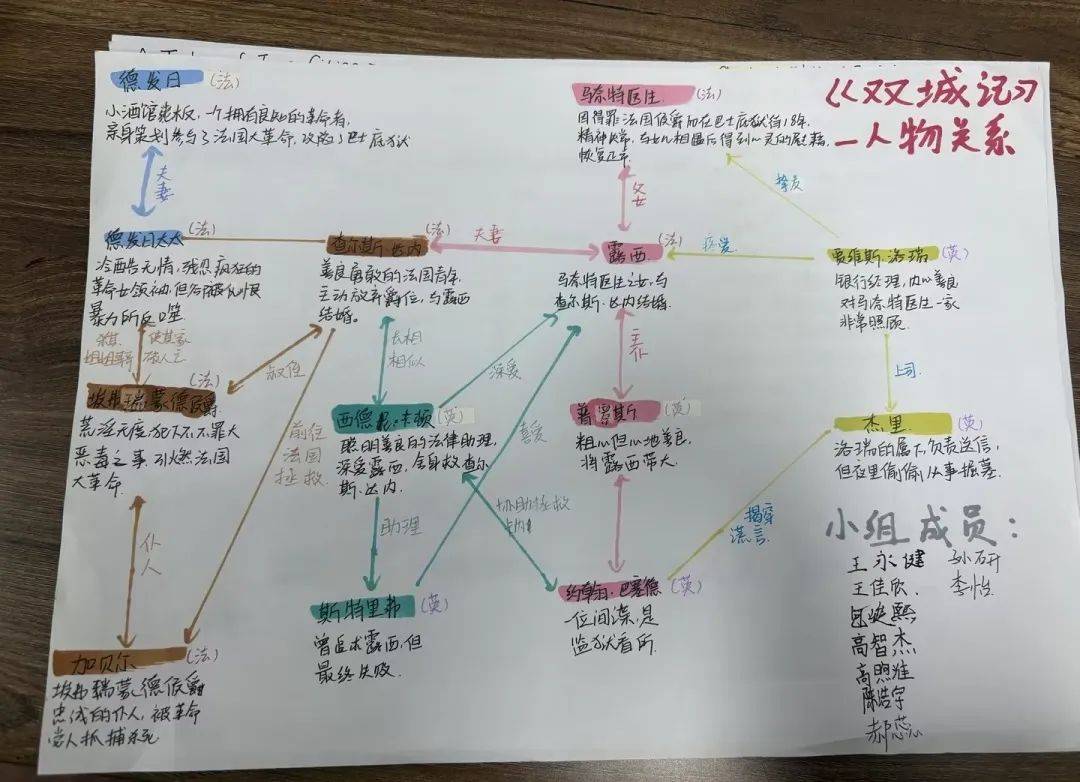 《双城记》
一人物关系
德发日 (法)
小酒馆老板,一个拥有良知的革命者.
亲身策划参与了法国大革命,攻陷了巴士底狱
夫妻
德发日太太 (法)
冷酷无情,残忍疯狂的
革命女领袖,但后被仇恨
暴力所反噬.
使其家
破人亡
埃弗瑞蒙德侯爵 (法)
荒淫无度,犯下不罪大
恶毒之事.引燃法国
大革命.
仆人
加贝尔 (法)
埃弗瑞蒙德侯爵
忠诚的仆人,被革命
党人抓捕杀死
查尔斯 达内 (法)
善良勇敢的法国青年.
主动放弃爵位,与露西
结婚。
叔侄
前往
法国
拯救
长相
相似
夫妻
西德尼·卡顿 (英)
聪明善良的法律助理,
深爱露西,舍身救查尔
斯.达内.
深爱
喜爱
助理
协助拯救
斯特里弗 (英)
曾追求露西,但
最终失败.
马奈特医生 (法)
因得罪法国侯爵而在巴士底狱待18年.
精神失常,与女儿相遇后得到心灵的慰藉,
恢复正常.
父女
露西 (法)
马奈特医生之女,与
查尔斯·达内结婚.
主仆
普罗斯 (英)
粗心但心地善良,
将露西带大.
约翰·巴塞德 (英)
一位间谍,是
监狱看所.
挚友
疼爱
贾维斯.洛瑞 (英)
银行经理,内心善良
对马奈特医生一家
非常照顾.
上司
杰里 (英)
洛瑞的属下,负责送信,
但夜里偷偷从事掘墓.
揭穿
谎言
小组成员:
王永健 孙研
王佳欣 李怡
高智杰
高煦雅
陈浩宇
郝蕊